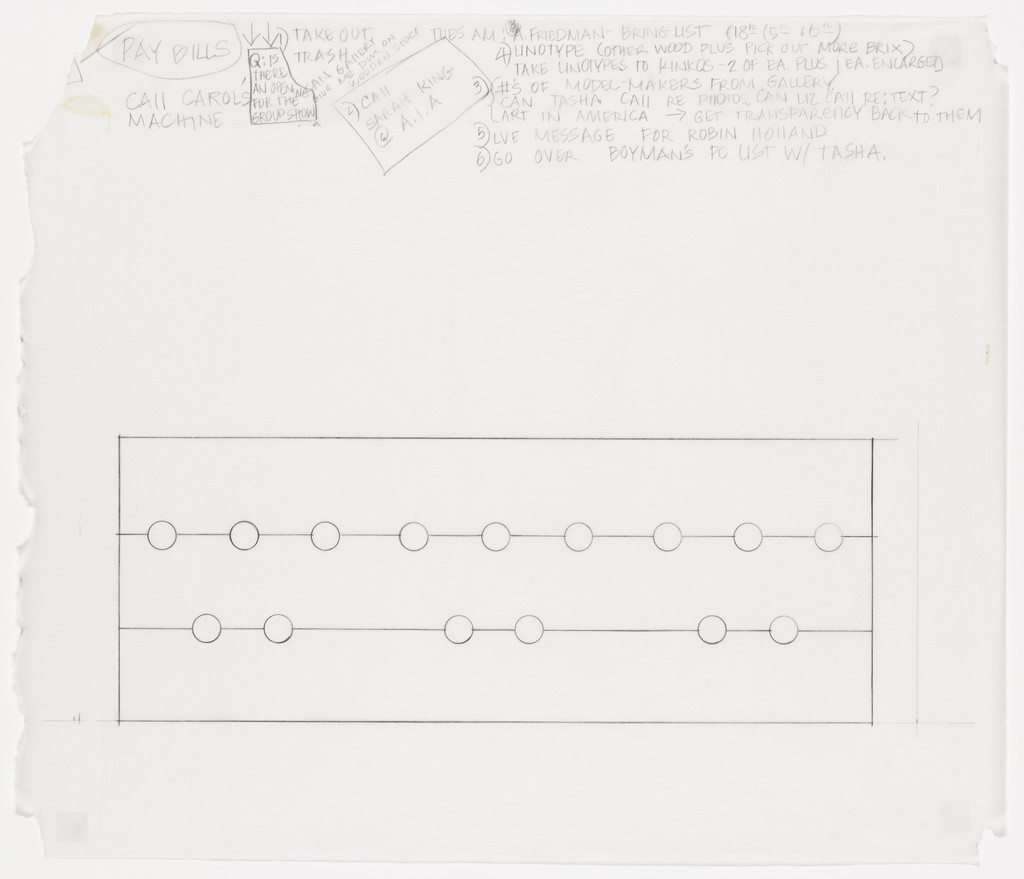 PAY BILLS
CALL CAROL'S
MACHINE
Q: IS
THERE
AN OPENING
FOR THE
GROUP SHOW
1) TAKE OUT
TRASH
GALLERY
ME DIM ON
WOODEN
2) CALL
SARAH KING
@ A.I.A
TUES AM
A. FRIEDMAN - BRING LIST (18th (5th + 6th)
4) LINOTYPE (OTHER WOOD PLUS PICK OUT MORE BRIX)
TAKE LINOTYPES TO KINKOS - 2 OF EA. PLUS 1 EA. ENLARGED
3) #'S OF MODEL-MAKERS FROM GALLERY
CAN TASHA CALL RE PHOTOS, CAN LIZ CALL RE: TEXT?
ART IN AMERICA → GET TRANSPARENCY BACK TO THEM
5) LVE MESSAGE FOR ROBIN HOLLAND
6) GO OVER BOYMAN'S PC LIST W/ TASHA.